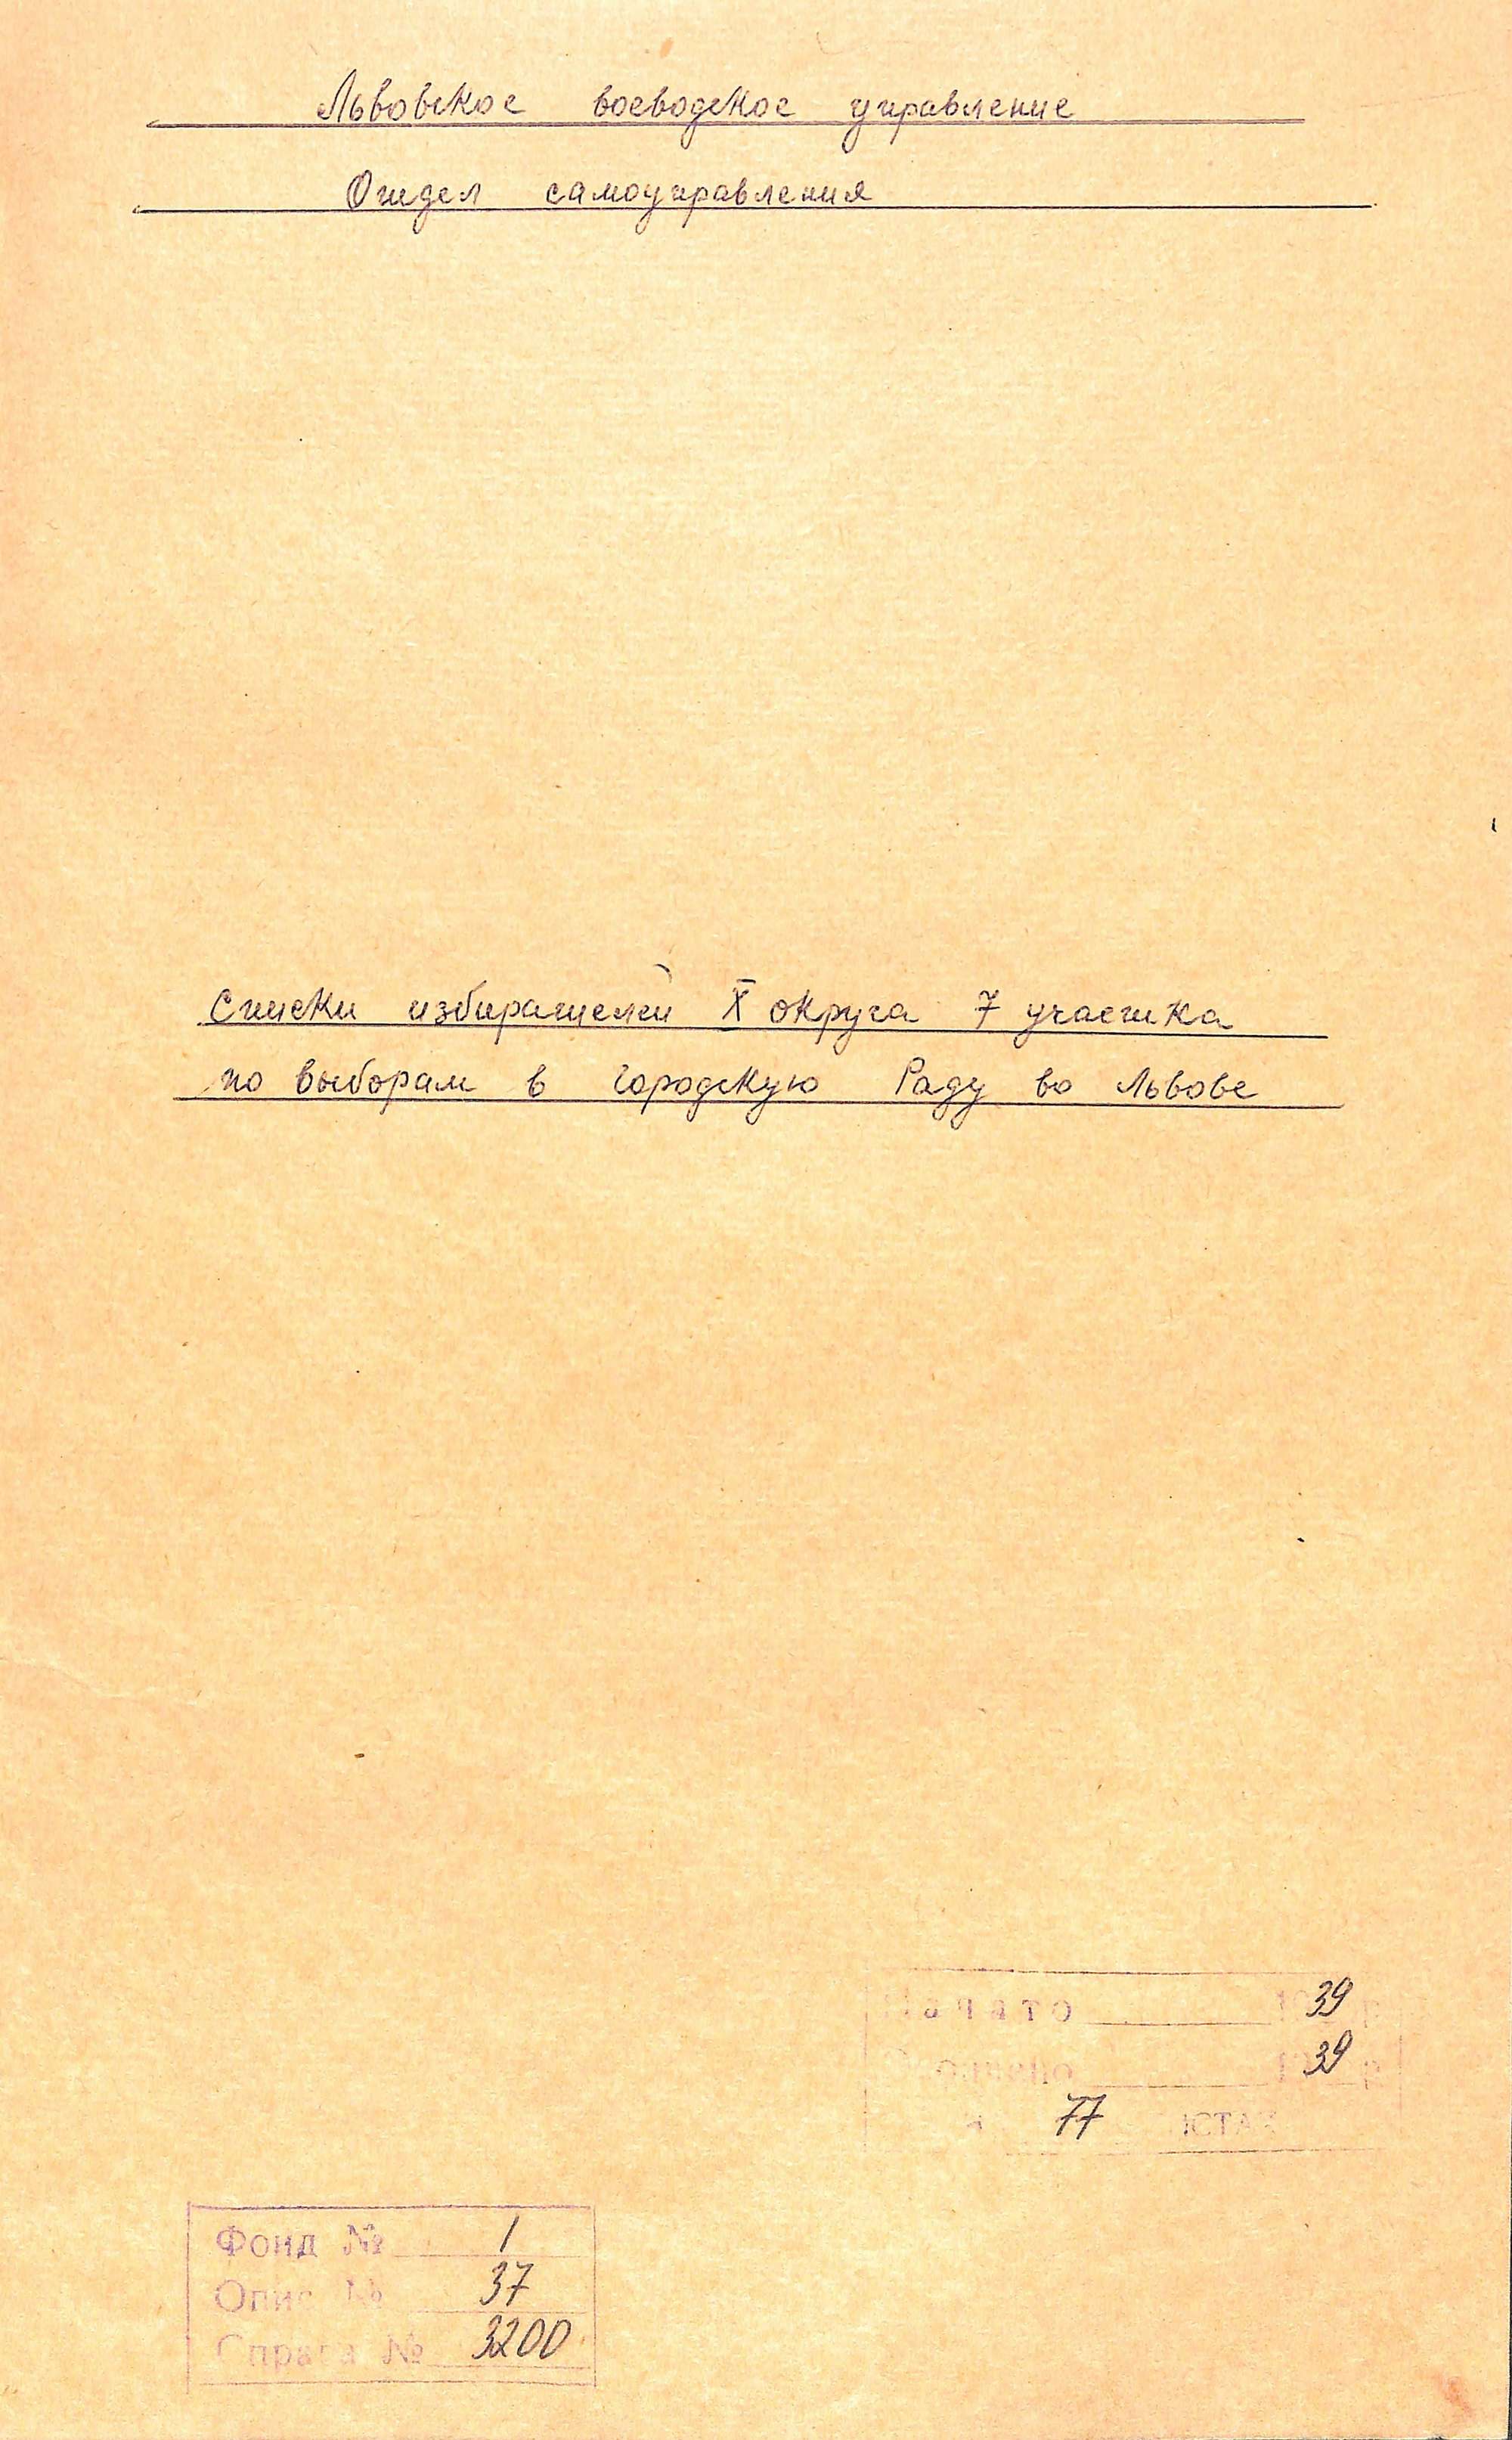 Львовское воеводское управление
Отдел самоуправления
Списки избирателей X округа 7 участка
по выборам в городскую Раду во Львове
39
39
77
Фонд № 1
Опис № 37
Справа № 3200